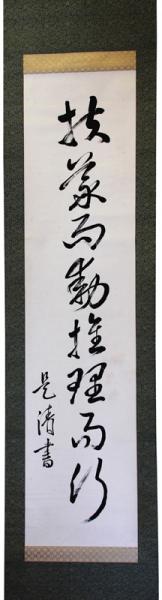 扶義而動推理而行
是清書